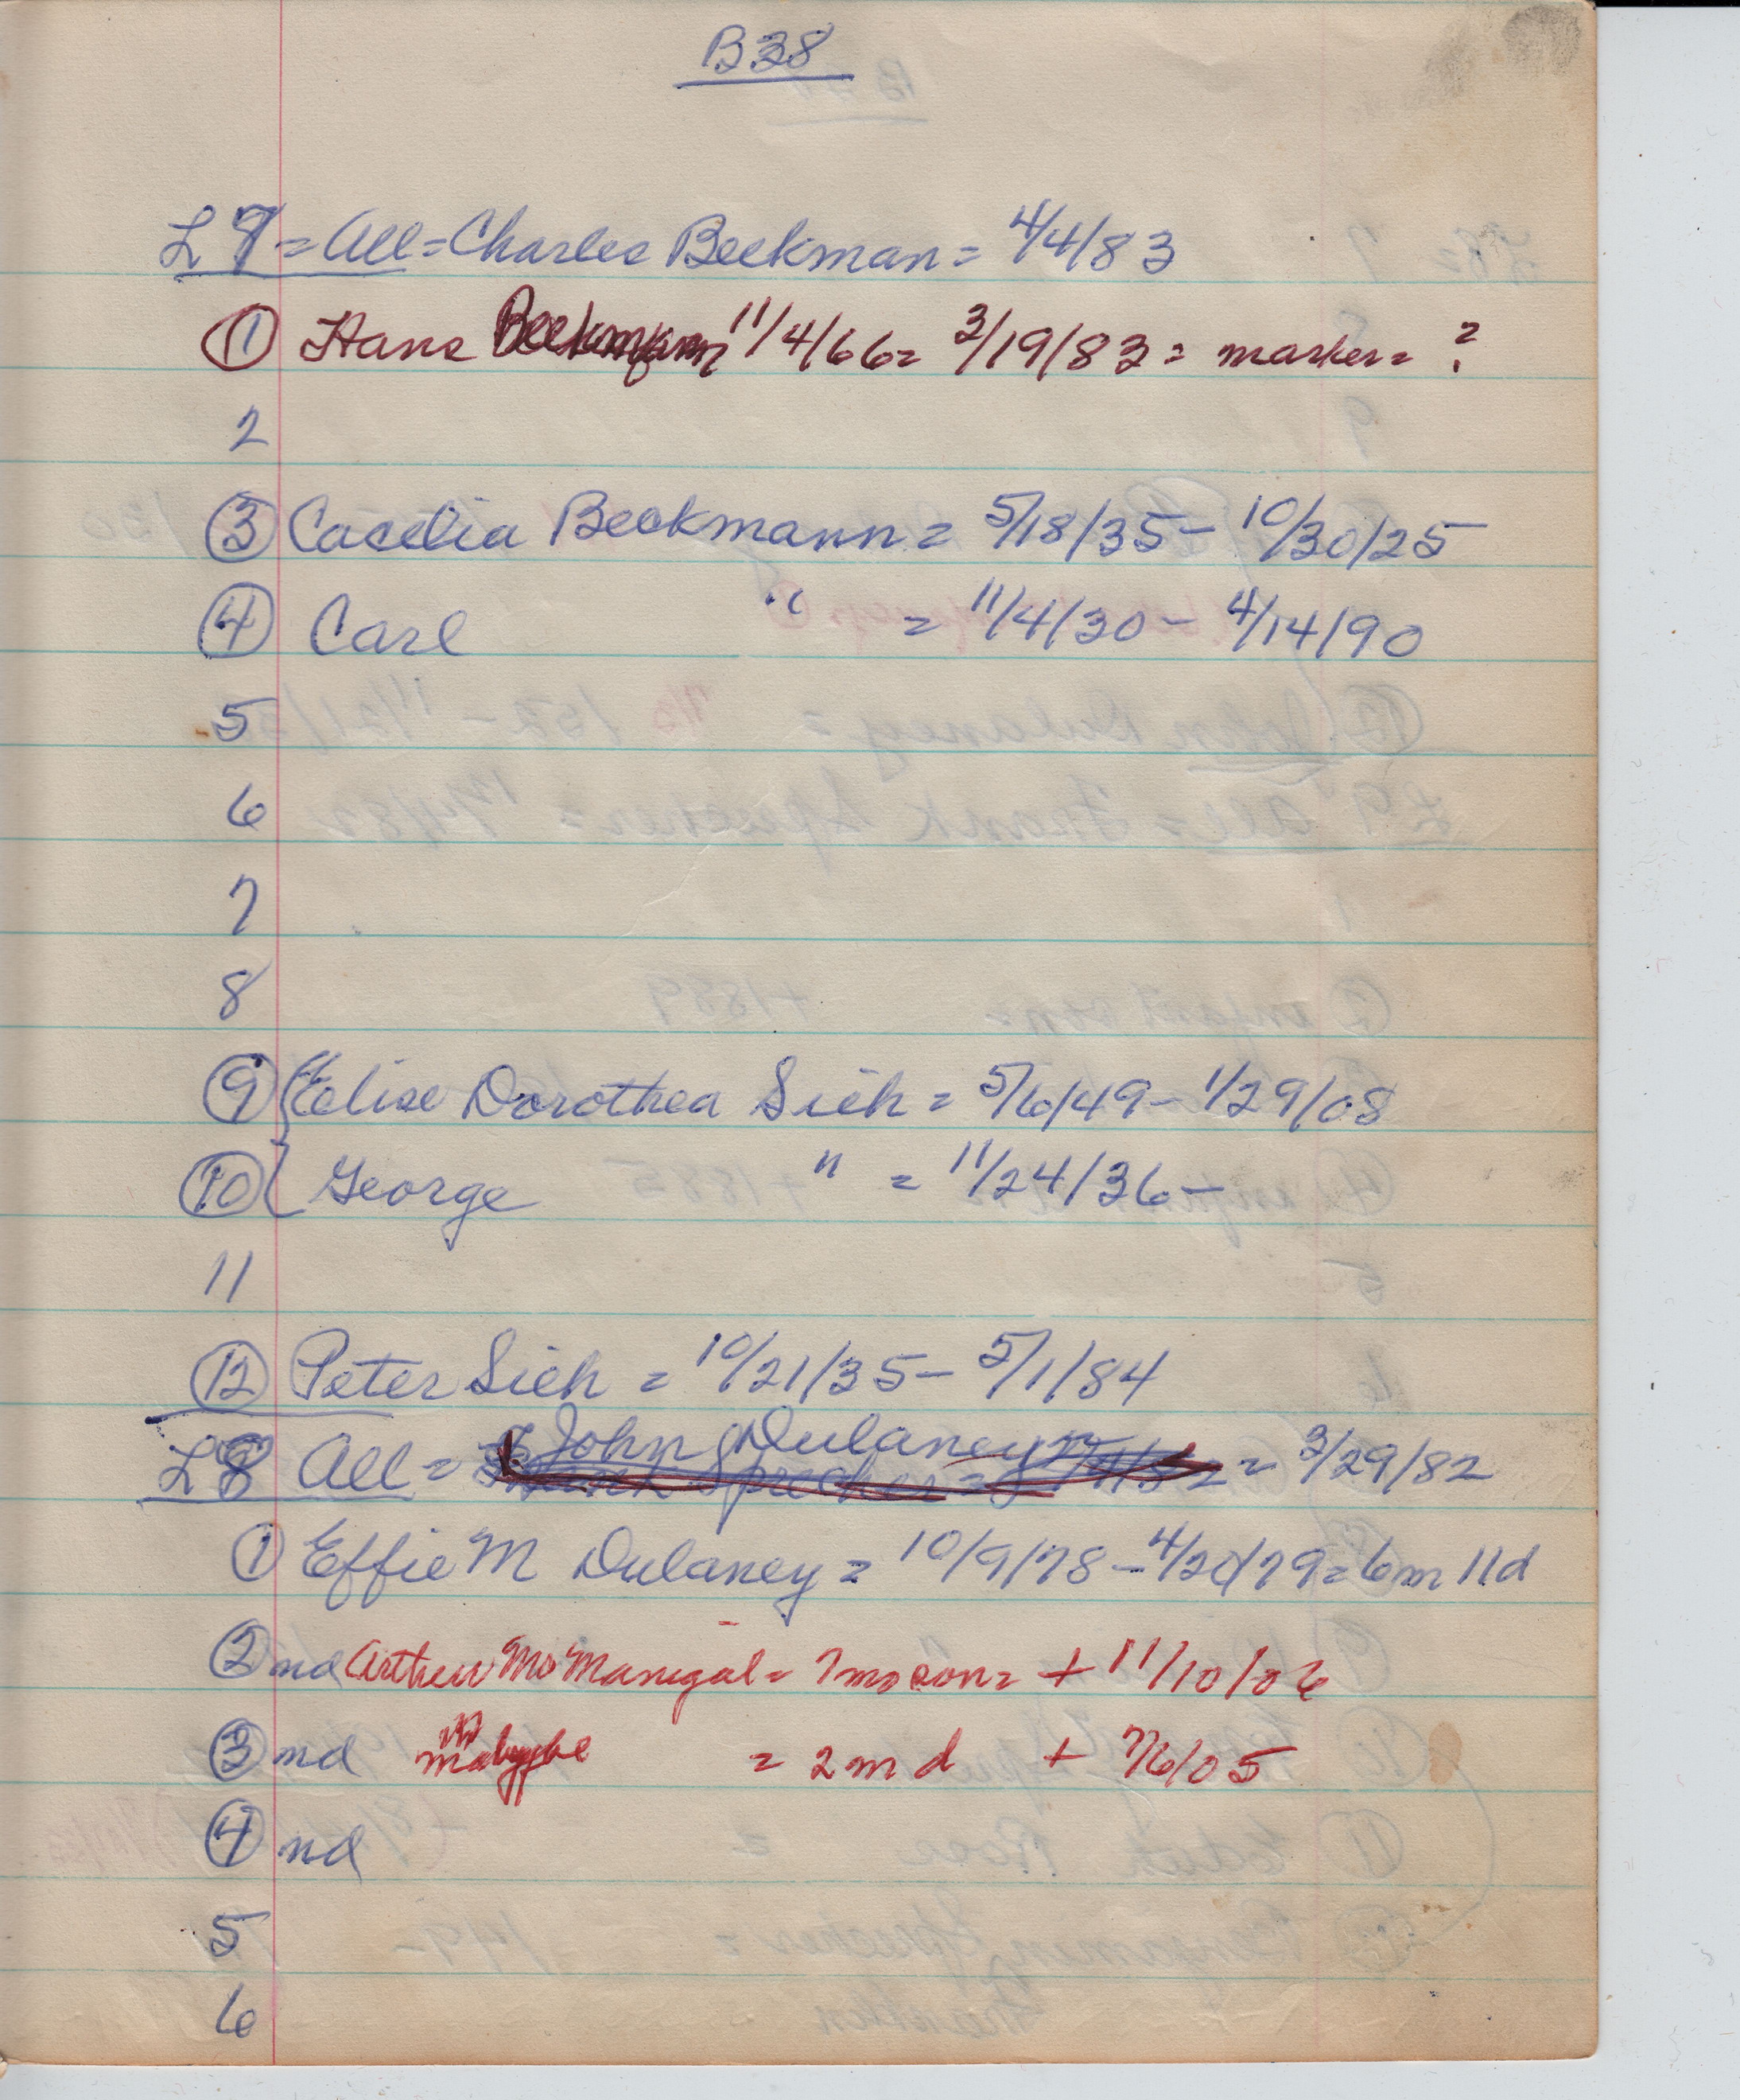 B38
L7 = All = Charles Beckman = 4/4/83
① Hans Beekmann 11/4/66 = 3/19/83 = marker = ?
2
③ Cacelia Beckmann = 5/18/35 - 10/30/25
④ Carl " = 11/4/30 - 4/14/90
5
6
7
8
⑨ Elise Dorothea Sieh = 5/6/49 - 1/29/08
⑩ George " = 11/24/36 -
11
⑫ Peter Sieh = 10/21/35 - 5/1/84
L8 All = John Dulaney = 3/29/82
① Effie M Dulaney = 10/9/78 - 4/20/79 = 6m 11d
② nd Arthur McManigal = 7mo son = + 11/10/06
③ nd = 2 m d + 7/6/05
④ nd
5
6